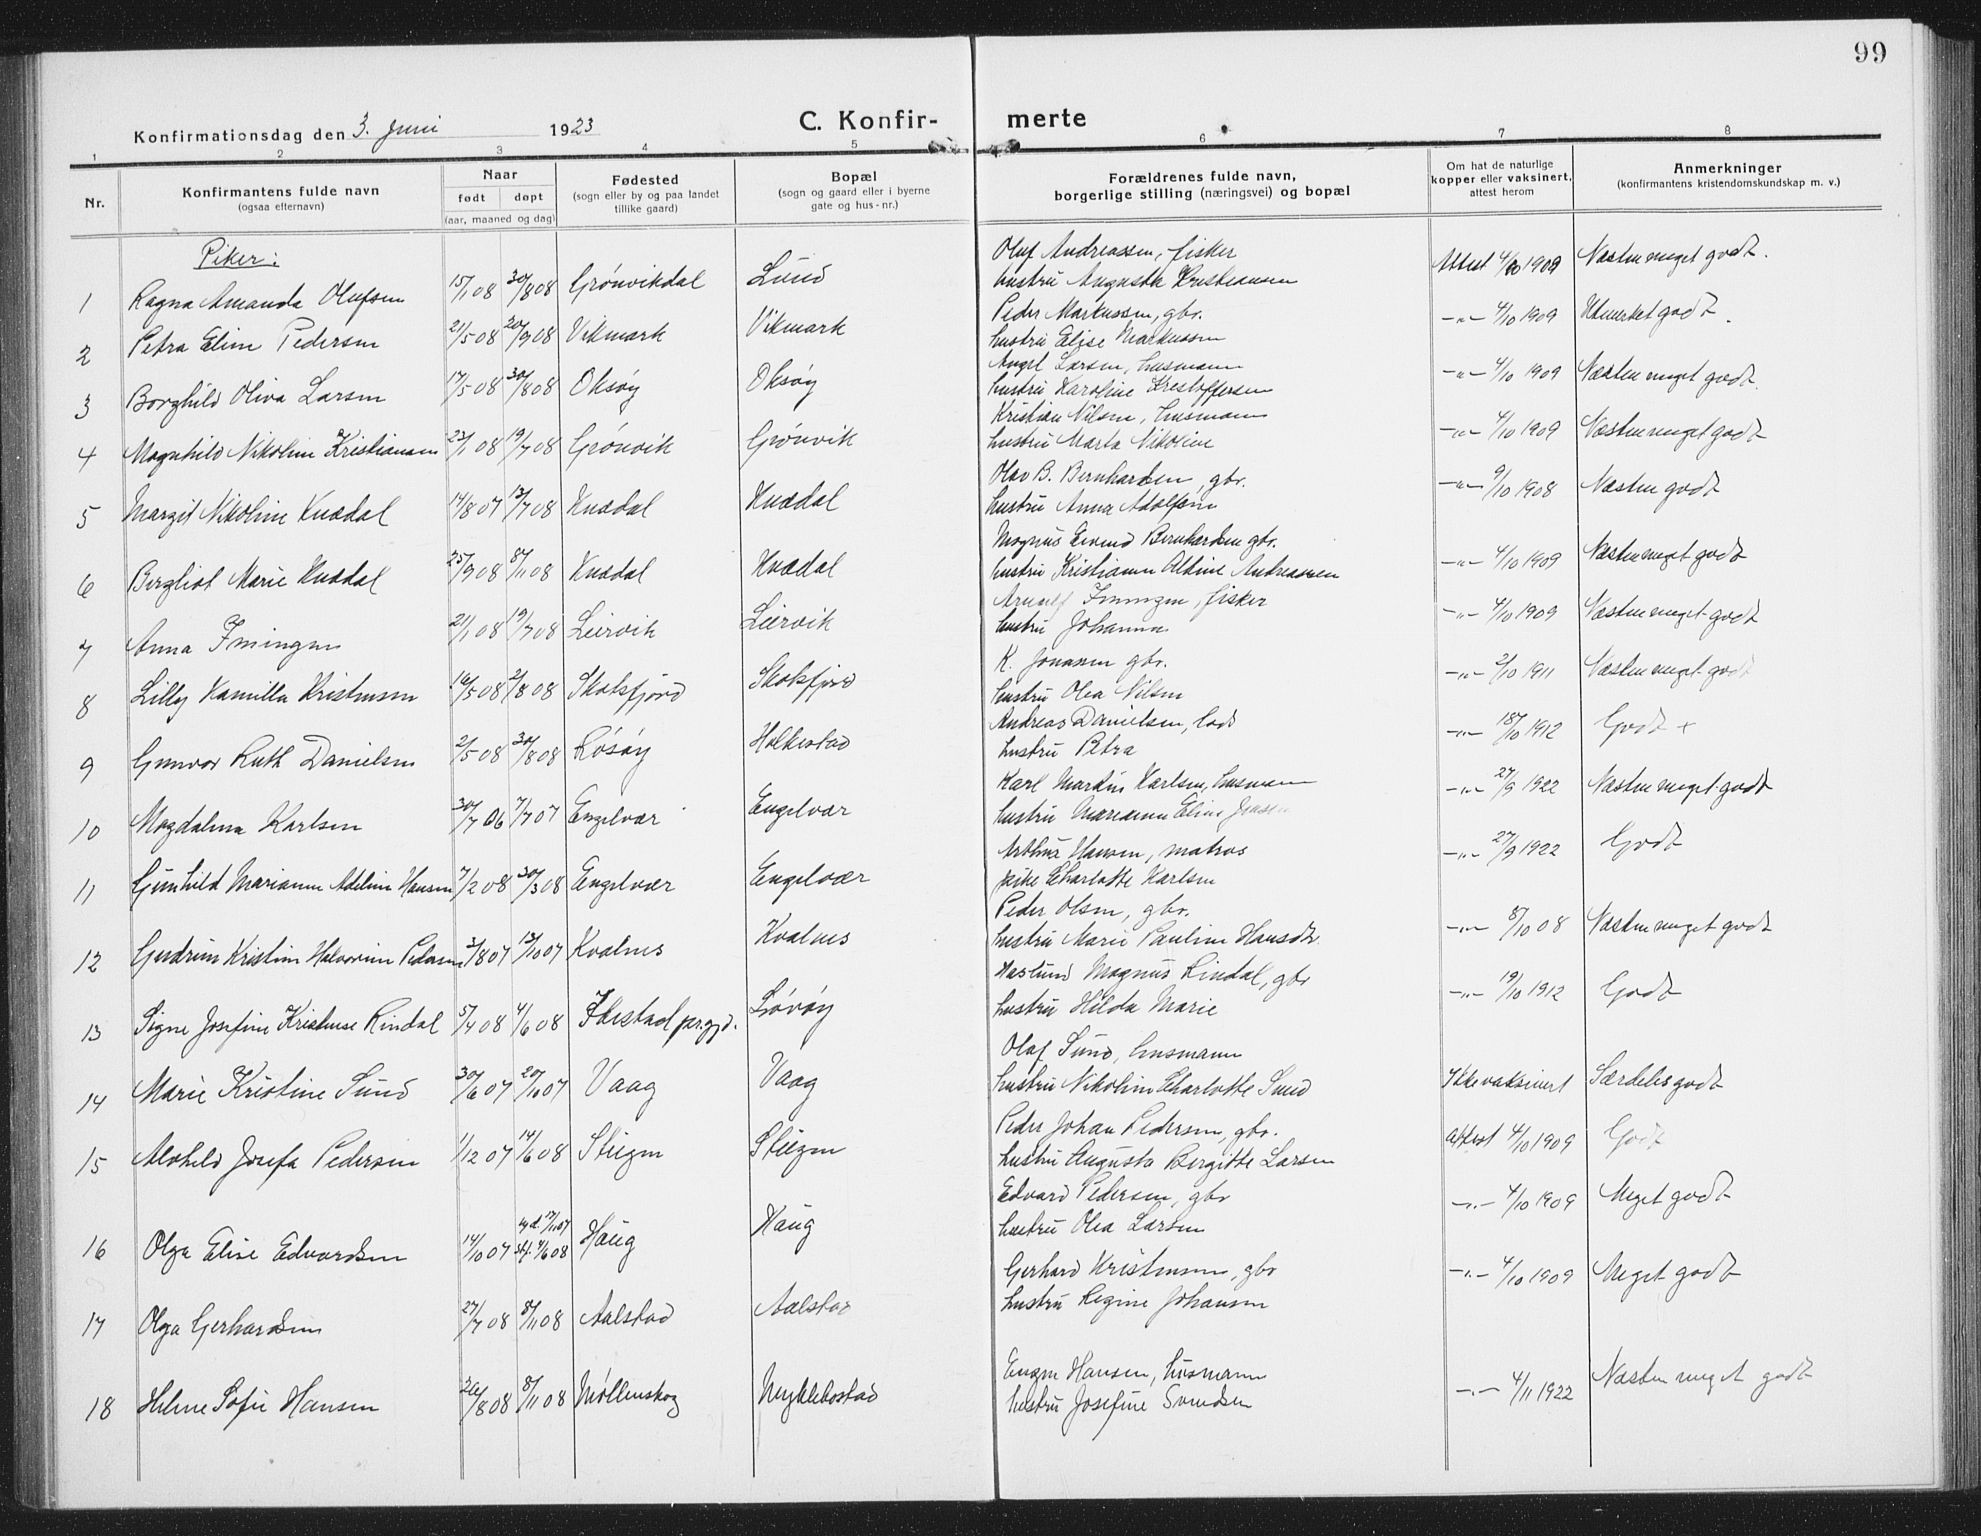 99
Konfirmationsdag den 3. Juni 1923
C. Konfir- merte
1 2 3 4 5 6 7 8
Nr.
Konfirmantens fulde navn
(ogsaa efternavn)
Naar
født døpt
(aar, maaned og dag)
Fødested
(sogn eller by og paa landet
tillike gaard)
Bopæl
(sogn og gaard eller i byerne
gate og hus-nr.)
Forældrenes fulde navn,
borgerlige stilling (næringsvei) og bopæl
Om hat de naturlige
kopper eller vaksinert,
attest herom
Anmerkninger
(konfirmantens kristendomskundskap m. v.)
Piker:
1 Ragna Amanda Olufsen 15/1 08 30/8 08 Grönvikdal Lund
Oluf Andreassen, fisker
hustru Augusta Kristiansen
Attest 4/10 1909 Næsten meget godt.
2 Petra Eline Pedersen 21/5 08 20/9 08 Vikmark Vikmark
Peder Markussen, gbr.
hustru Elise Markussen
-"- 4/10 1909 Utmerket godt.
3 Borghild Oliva Larsen 17/5 08 30/8 08 Oksöy Oksöy
Angel Larsen, husmann
hustru Karoline Kristoffersen
-"- 4/10 1909 Næsten meget godt.
4 Magnhild Nikoline Kristiansen 23/1 08 19/7 08 Grönvik Grönvik
Kristian Nilsen, husmann
hustru Marta Nikoline
-"- 4/10 1909 Næsten meget godt
5 Margit Nikoline Knædal 14/8 07 13/7 08 Knædal Knædal
Olav B. Bernhardsen, gbr.
hustru Anna Adolfsen
-"- 9/10 1908 Næsten godt
6 Bergliot Marie Knædal 25/9 08 8/11 08 Knædal Knædal
Magnus Eivind Bernhardsen gbr.
hustru Kristianne Aldine Andreassen
-"- 4/10 1909 Næsten meget godt
7 Anna Iningen 21/1 08 19/7 08 Leirvik Leirvik
Arnulf Iningen, fisker
hustru Johanna
-"- 4/10 1909 Næsten meget godt
8 Lilly Kamilla Kristensen 16/5 08 2/8 08 Skotsfjord Skotsfjord
K. Jonassen gbr.
hustru Olea Nilsen
-"- 2/10 1911 Næsten meget godt
9 Gunvor Ruth Danielsen 2/5 08 30/8 08 Rösöy Holkestad
Andreas Danielsen, lods
hustru Petra
-"- 18/10 1912 Godt +
10 Magdalena Karlsen 30/7 06 7/7 07 Engelvær Engelvær
Karl Markus Karlsen, husmann
hustru Marianne Eline Jensen
-"- 27/9 1922 Næsten meget godt
11 Gunhild Marianne Adeline Hansen 7/2 08 30/3 08 Engelvær Engelvær
Arthur Hansen, matros
pike Charlotte Karlsen
-"- 27/9 1922 Godt
12 Gudrun Kristine Halvorine Pedersen 3/8 07 13/10 07 Kvalnes Kvalnes
Peder Olsen, gbr.
hustru Marie Pauline Hansdtr.
-"- 8/10 08 Næsten meget godt
13 Signe Josefine Kristense Rindal 5/4 08 4/6 08 Ibestad pr.gjd. Lövöy
Haslund Magnus Rindal, gbr
hustru Hilda Marie
-"- 19/10 1912 Godt
14 Marie Kristine Sund 30/6 07 20/10 07 Vaag Vaag
Olaf Sund, husmann
hustru Nikoline Charlotte Sund
Ikke vaksinert Særdeles godt
15 Alvhild Josefa Pedersen 1/12 07 14/6 08 Steigen Steigen
Peder Johan Pedersen, gbr.
hustru Augusta Bergitte Larsen
Attest 4/10 1909 Godt
16 Olga Elise Edvardsen 14/10 07 hj.d. 17/11 07 Haug Haug
stf. 4/6 08
Edvard Pedersen, gbr
hustru Olea Larsen
-"- 4/10 1909 Meget godt
17 Olga Gerhardsen 27/7 08 8/11 08 Aalstad Aalstad
Gerhard Kristensen, gbr
hustru Regine Johansen
-"- 4/10 1909 Meget godt
18 Helene Sofie Hansen 20/8 08 8/11 08 Møllenskog Myklebostad
Eugen Hansen, husmann
hustru Josefine Svendsen
-"- 4/11 1922 Næsten meget godt